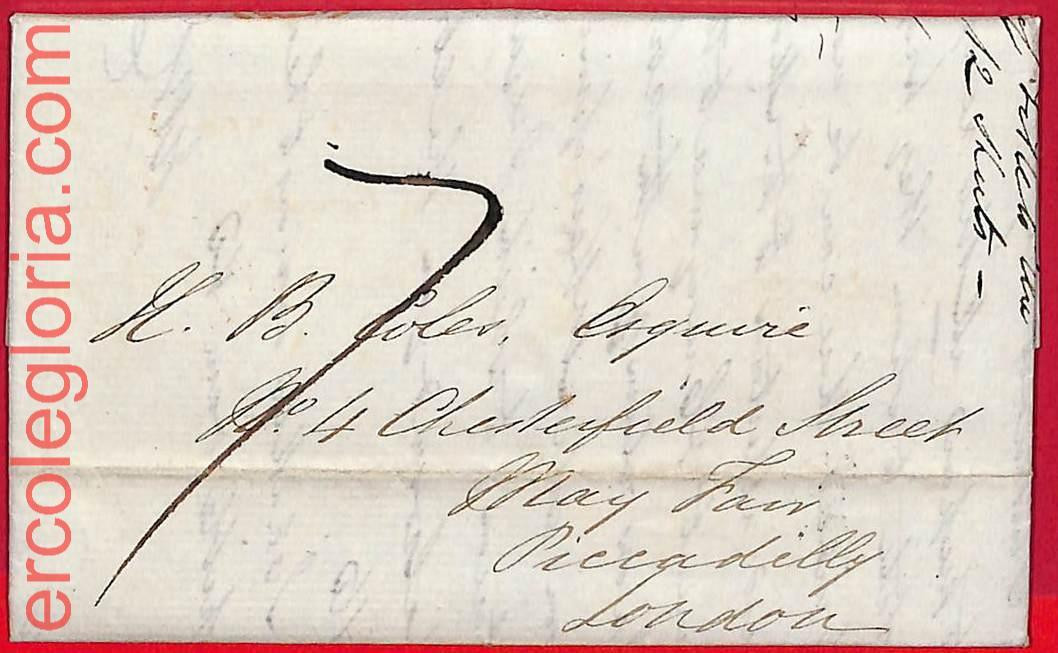 H. B. Coles, Esquire
No. 4 Chesterfield Street
May Fair
Piccadilly
London
7
12
ercolegloria.com